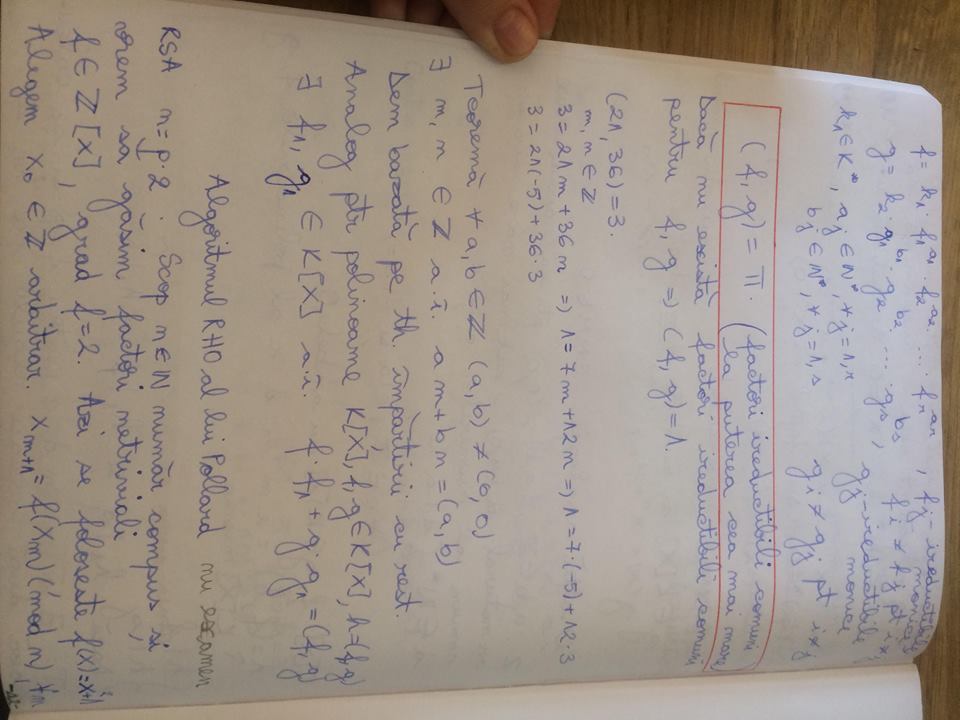 f = k₁ · f₁^a₁ · f₂^a₂ · ... · fᵣ^aᵣ , fj - ireductibile monice
g = k₂ · g₁^b₁ · g₂^b₂ · ... · gₛ^bₛ , fi ≠ fj pt i ≠ j
k₁ ∈ K*, aj ∈ N*, ∀ j = 1,r gj - ireductibile monice
bj ∈ N*, ∀ j = 1,s gi ≠ gj pt i ≠ j
(f, g) = Π. (factori ireductibili comuni
la puterea cea mai mare)
Dacă nu există factori ireductibili comuni
pentru f, g => (f, g) = 1.
(21, 36) = 3.
m, n ∈ Z
3 = 21m + 36n => 1 = 7m + 12n => 1 = 7·(-5) + 12·3
3 = 21(-5) + 36·3
Teoremă ∀ a, b ∈ Z (a, b) ≠ (0, 0)
∃ m, n ∈ Z a.î. am + bn = (a, b)
Dem bazată pe th. împărțirii cu rest.
Analog ptr polinoame K[X], f, g ∈ K[X], h = (f, g)
∃ f₁, g₁ ∈ K[X] a.î. f·f₁ + g·g₁ = (f, g)
Algoritmul RHO al lui Pollard nu examen
RSA n = p·2. Scop n ∈ N număr compus și
vrem să găsim factori netriviali
f ∈ Z[X], grad f = 2. Azi se folosește f(x) = x²+1
Alegem x₀ ∈ Z arbitrar. xₘ₊₁ = f(xₘ) (mod n), ∀m